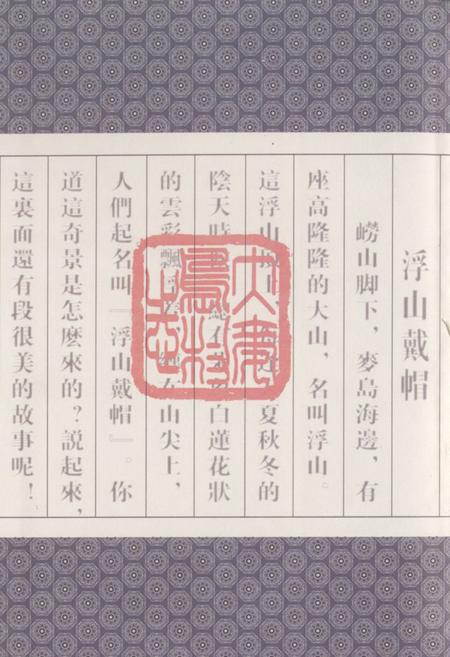 浮山戴帽
嶗山脚下，麥島海邊，有
座高隆隆的大山，名叫浮山。
這浮山 夏秋冬的
陰天時 白蓮花狀
的雲彩飄 山尖上，
人們起名叫『浮山戴帽』。你
道這奇景是怎麼來的？說起來，
這裏面還有段很美的故事呢！
大麥
島村